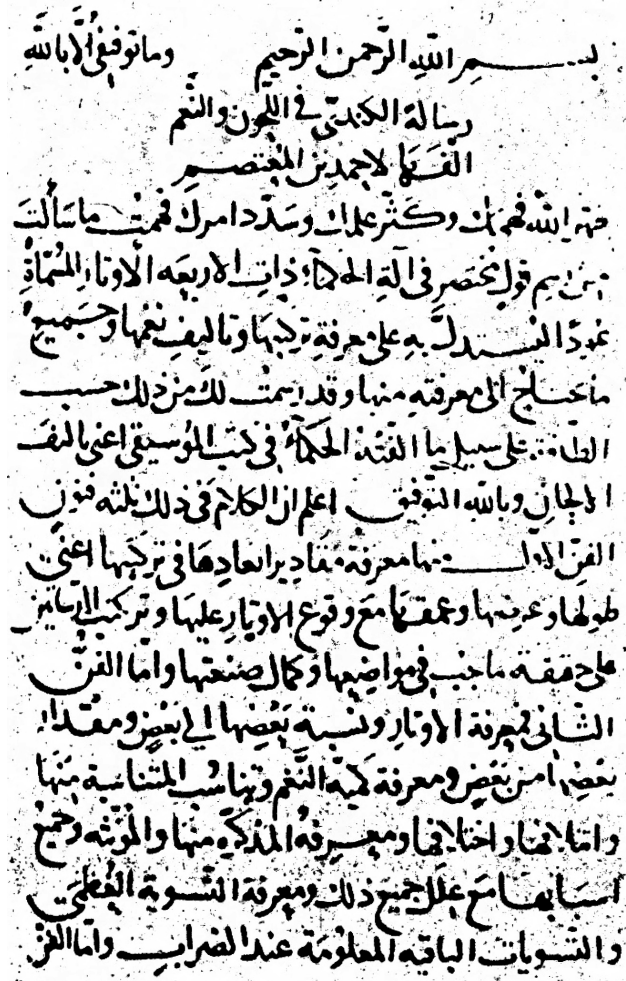 بسم الله الرحمن الرحيم وما توفيقي الا بالله
رسالة الكندي في اللحون والنغم
الفها لاحمد بن المعتصم
الله فهمك وكثر علمك وسدد امرك فهمت ما سألت
رسم قول مختصر في آلة الحكماء ذات الاربعه الاوتار المسماة
عودا ليستدل به على معرفة تركيبها وتاليف نغمها وجميع
ما يحتاج الى معرفته منها وقد رسمت لك من ذلك حسب
الطاقة على سبيل ما الفته الحكماء في كتب الموسيقى اعني تاليف
الالحان وبالله التوفيق اعلم ان الكلام في ذلك ثلثه فنون
الفن الاول منها معرفة مقادير ابعادها في تركيبها اعني
طولها وعرضها وعمقها مع وقوع الاوتار عليها وتركيب الدساتين
على حقيقة ما يجب في مواضعها وكمال صنعتها واما الفن
الثاني فمعرفة الاوتار ونسبة بعضها الي بعض ومقدار
بعضها من بعض ومعرفة كمية النغم وتناسب المتناسبة منها
وائتلافها واختلافها ومعرفة المذكره منها والمؤنثه وجميع
اسبابها مع علل جميع ذلك ومعرفة التسوية العظمى
والتسويات الباقيه المعلومة عند الضراب واما الفن